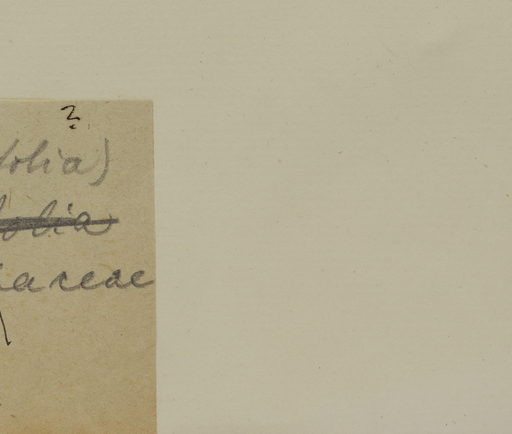 ?
folia)
folia
iaceae